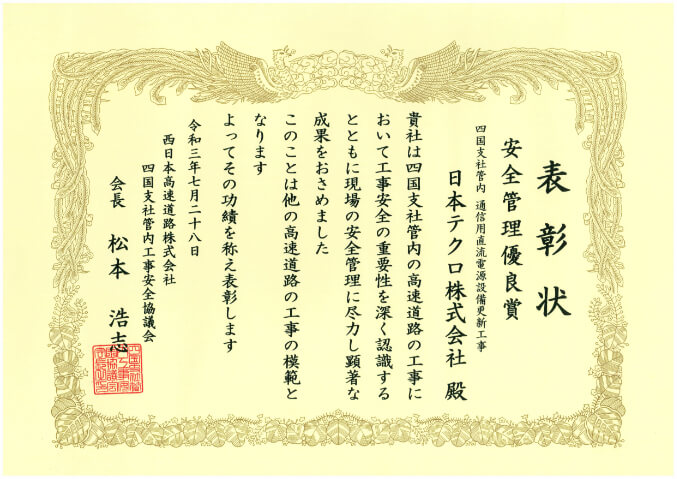 表彰状
安全管理優良賞
四国支社管内 通信用直流電源設備更新工事
日本テクロ株式会社 殿
貴社は四国支社管内の高速道路の工事に
おいて工事安全の重要性を深く認識する
とともに現場の安全管理に尽力し顕著な
成果をおさめました
このことは他の高速道路の工事の模範と
なります
よってその功績を称え表彰します
令和三年七月二十八日
西日本高速道路株式会社
四国支社管内工事安全協議会
会長 松本 浩志